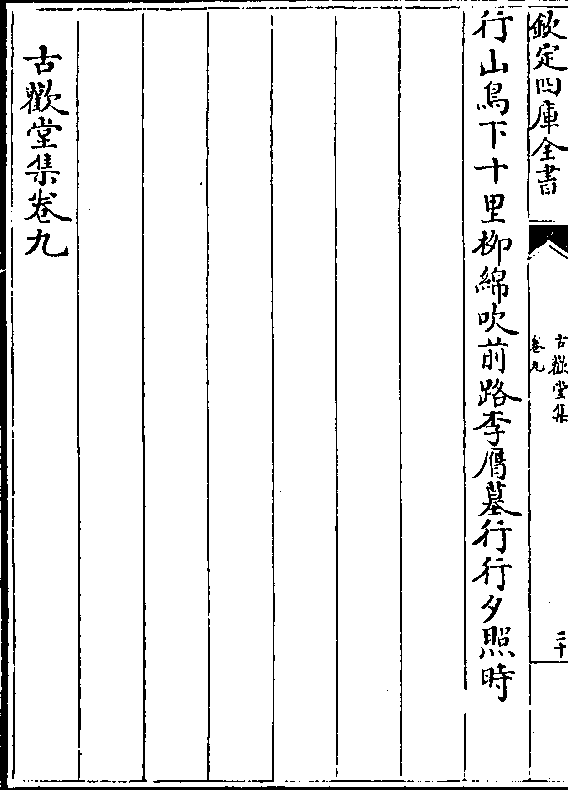 欽定四庫全書
古歡堂集
卷九
二十
行山鳥下十里柳綿吹前路李膺墓行行夕照時
古歡堂集卷九